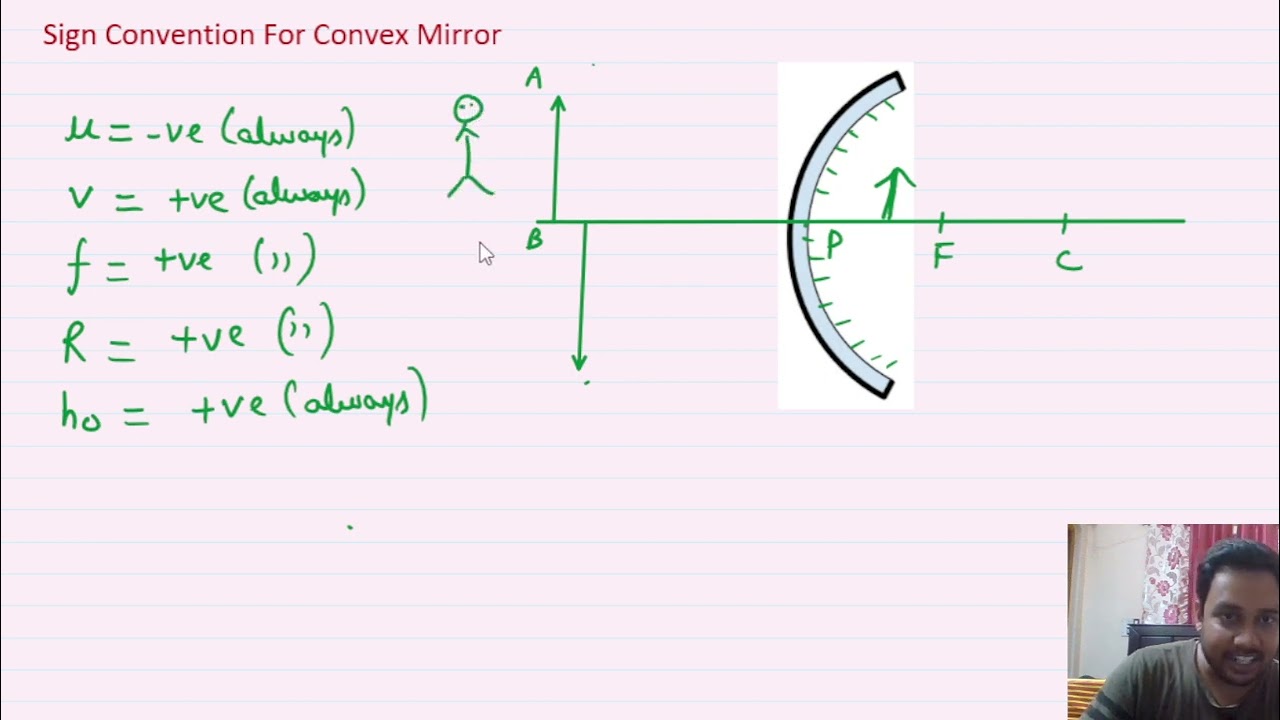 Sign Convention For Convex Mirror
u = -ve (always)
v = +ve (always)
f = +ve (,,)
R = +ve (,,)
ho = +ve (always)
A
B
P
F
C